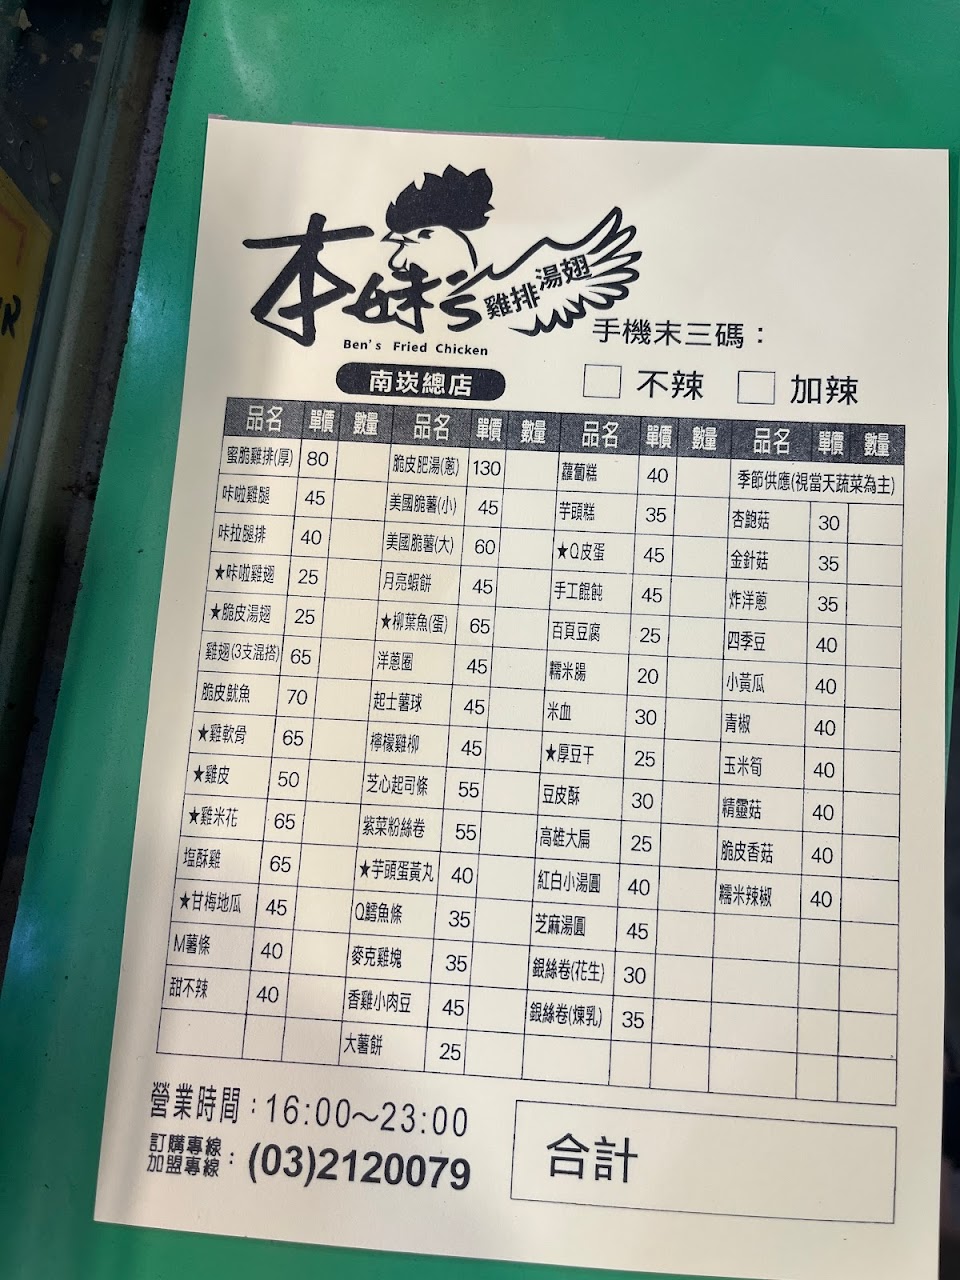 本妹ㄋ
雞排湯翅
Ben's Fried Chicken
南崁總店
手機末三碼：
不辣 加辣
品名 單價 數量 品名 單價 數量 品名 單價 數量 品名 單價 數量
蜜脆雞排(厚) 80 脆皮肥湯(蔥) 130 蘿蔔糕 40 季節供應(視當天蔬菜為主)
咔啦雞腿 45 美國脆薯(小) 45 芋頭糕 35 杏鮑菇 30
咔拉腿排 40 美國脆薯(大) 60 ★Q皮蛋 45 金針菇 35
★咔啦雞翅 25 月亮蝦餅 45 手工餛飩 45 炸洋蔥 35
★脆皮湯翅 25 ★柳葉魚(蛋) 65 百頁豆腐 25 四季豆 40
雞翅(3支混搭) 65 洋蔥圈 45 糯米腸 20 小黃瓜 40
脆皮魷魚 70 起士薯球 45 米血 30 青椒 40
★雞軟骨 65 檸檬雞柳 45 ★厚豆干 25 玉米筍 40
★雞皮 50 芝心起司條 55 豆皮酥 30 精靈菇 40
★雞米花 65 紫菜粉絲卷 55 高雄大扁 25 脆皮香菇 40
塩酥雞 65 ★芋頭蛋黃丸 40 紅白小湯圓 40 糯米辣椒 40
★甘梅地瓜 45 Q鱈魚條 35 芝麻湯圓 45
M薯條 40 麥克雞塊 35 銀絲卷(花生) 30
甜不辣 40 香雞小肉豆 45 銀絲卷(煉乳) 35
大薯餅 25
營業時間：16:00～23:00
訂購專線
加盟專線：(03)2120079
合計